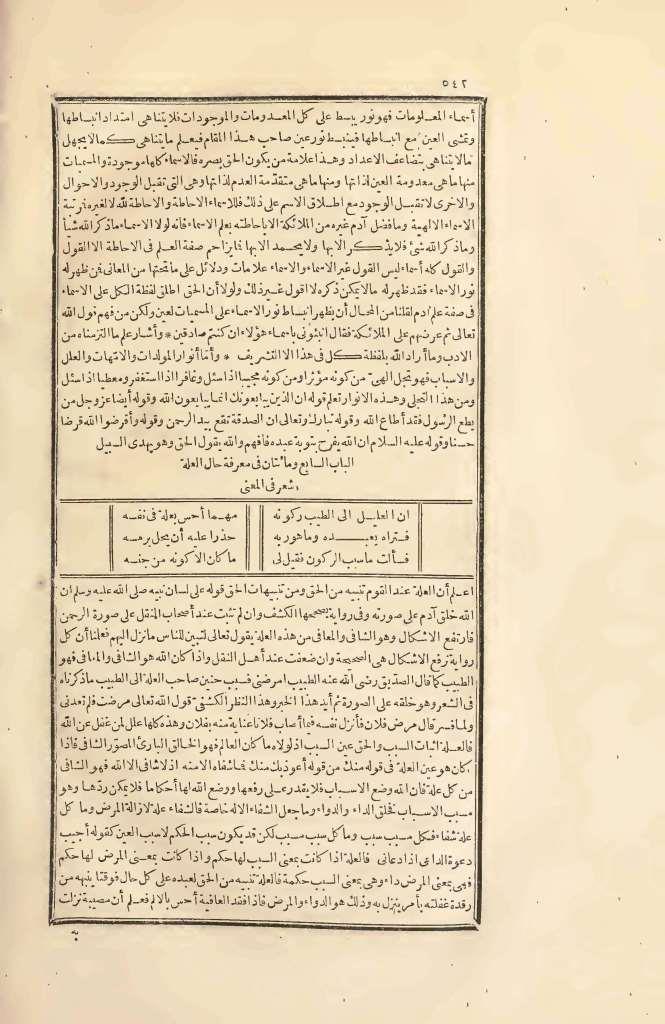 ٥٤٢
أسماء المعلومات فهو نور يبسط على كل المعدومات والموجودات فلا يتناهى امتداد انبساطها
وتمشى العين مع انبساطها فينبسط نور عين صاحب هذا المقام فيعلم ما يتناهى كما لا يجهل
مالا يتناهى بتضاعف الاعداد وهذا علامة من يكون الحق بصره فالاسماء كلها موجودة والمسميات
منها ماهى معدومة العين لذاتها ومنها ماهى متقدمة العدم لذاتها وهى التى تقبل الوجود والاحوال
والاخرى لا تقبل الوجود مع اطلاق الاسم على ذلك فللاسماء الاحاطة والاحاطة لله لا لغيره فمرتبة
الاسماء الالهية وما فضل آدم غيره من الملائكة الا باحاطته بعلم الاسماء فانه لولا الاسماء ما ذكر الله شيأ
وما ذكر الله شئ فلا يذكر الا بها ولا يحمد الا بها فما زاحم صفة العلم فى الاحاطة الا القول
والقول كله أسماء ليس القول غير الاسماء والاسماء علامات ودلائل على ما تحتها من المعانى فمن ظهر له
نور الاسماء فقد ظهر له مالا يمكن ذكره لا اقول غير ذلك ولولا أن الحق اطلق لفظة الكل على الاسماء
فى صفة علم آدم لقلنا من المحال أن يظهر انبساط نور الاسماء على المسميات لعين ولكن من فهم قول الله
تعالى ثم عرضهم على الملائكة فقال انبئونى باسماء هؤلاء ان كنتم صادقين * وأشار علم ما التزمناه من
الادب وما أراد الله بلفظة كل فى هذا الا التشريف * وأما أنوار المولدات والامهات والعلل
والاسباب فهو تجل الهى من كونه مؤثرا ومن كونه مجيبا اذا سئل وغافرا اذا استغفر ومعطيا اذا سئل
ومن هذا التجلى وهذه الانوار تعلم قوله ان الذين يبايعونك انما يبايعون الله وقوله أيضا عز وجل من
يطع الرسول فقد أطاع الله وقوله تبارك وتعالى ان الصدقة تقع بيد الرحمن وقوله وأقرضوا الله قرضا
حسنا وقوله عليه السلام ان الله يفرح بتوبة عبده فافهم والله يقول الحق وهو يهدى السبيل
الباب السابع ومائتان فى معرفة حال العلة
شعر فى المعنى
ان العليل الى الطبيب ركونه مهما أحس بعلة فى نفسه
فتراه يعبده وما هو ربه حذرا عليه أن يحل برمسه
فسألت ما سبب الركون فقيل لى ما كان الا كونه من جنسه
اعلم أن العلة عند القوم تنبيه من الحق ومن تنبيهات الحق قوله على لسان نبيه صلى الله عليه وسلم ان
الله خلق آدم على صورته وفى رواية يصححها الكشف وان لم تثبت عند أصحاب النقل على صورة الرحمن
فارتفع الاشكال وهو الشافى والمعافى من هذه العلة يقول تعالى لتبين للناس ما نزل اليهم فعلمنا أن كل
رواية ترفع الاشكال هى الصحيحة وان ضعفت عند أهل النقل واذا كان الله هو الشافى والمعافى فهو
الطبيب كما قال الصديق رضى الله عنه الطبيب امرضنى فسبب حنين صاحب العلة الى الطبيب ما ذكرناه
فى الشعر وهو خلقه على الصورة ثم أيد هذا الخبر وهذا النظر الكشفى قول الله تعالى مرضت فلم تعدنى
ولما فسر قال مرض فلان فأنزل نفسه فيما أصاب فلانا عناية منه بفلان وهذه كلها علل لمن غفل عن الله
فالعلة اثبات السبب والحق عين السبب اذ لولاه ما كان العالم فهو الخالق البارئ المصور الشافى فاذا
كان هو عين العلة فى قوله منك من قوله أعوذ بك منك فما شفاه الا منه اذ لا شافى الا الله فهو الشافى
من كل علة فان الله وضع الاسباب فلا يقدر على رفعها ووضع الله لها أحكاما فلا يمكن ردها وهو
مسبب الاسباب فخلق الداء والدواء وما جعل الشفاء الا له خاصة فالشفاء علة لازالة المرض وما كل
علة شفاء فكل مسبب سبب وما كل سبب مسبب لكن قد يكون سبب الحكم لا سبب العين كقوله أجيب
دعوة الداعى اذا دعانى فالعلة اذا كانت بمعنى السبب لها حكم واذا كانت بمعنى المرض لها حكم
فهى بمعنى المرض داء وهى بمعنى السبب حكمة فالعلة تنبيه من الحق لعبده على كل حال فوقتا ينبهه من
رقدة غفلته بأمر ينزل به وذلك هو الدواء والمرض فاذا فقد العافية أحس بالالم فعلم أن مصيبة نزلت
به